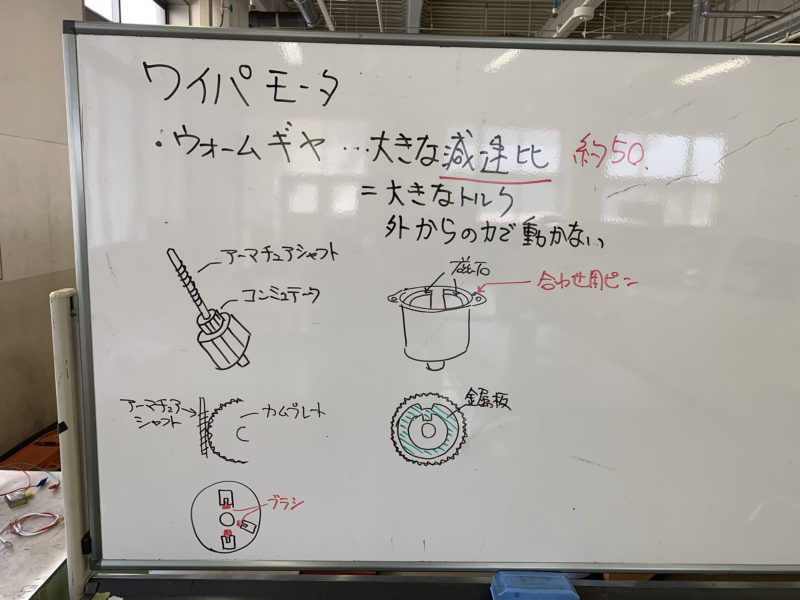 ワイパモータ
・ウォームギヤ…大きな減速比 約50.
=大きなトルク
外からの力で動かない。
アーマチュアシャフト
コンミュテータ
磁石
合わせ用ピン
アーマチュア
シャフト
カムプレート
金属板
ブラシ